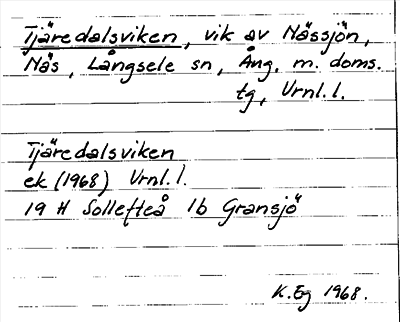 Tjäredalsviken, vik av Nässjön,
Näs, Långsele sn, Ång. m. doms.
tg, Urnl. l.
Tjäredalsviken
ek (1968) Urnl. l.
19 H Sollefteå 1b Gransjö
K. Eg 1968.